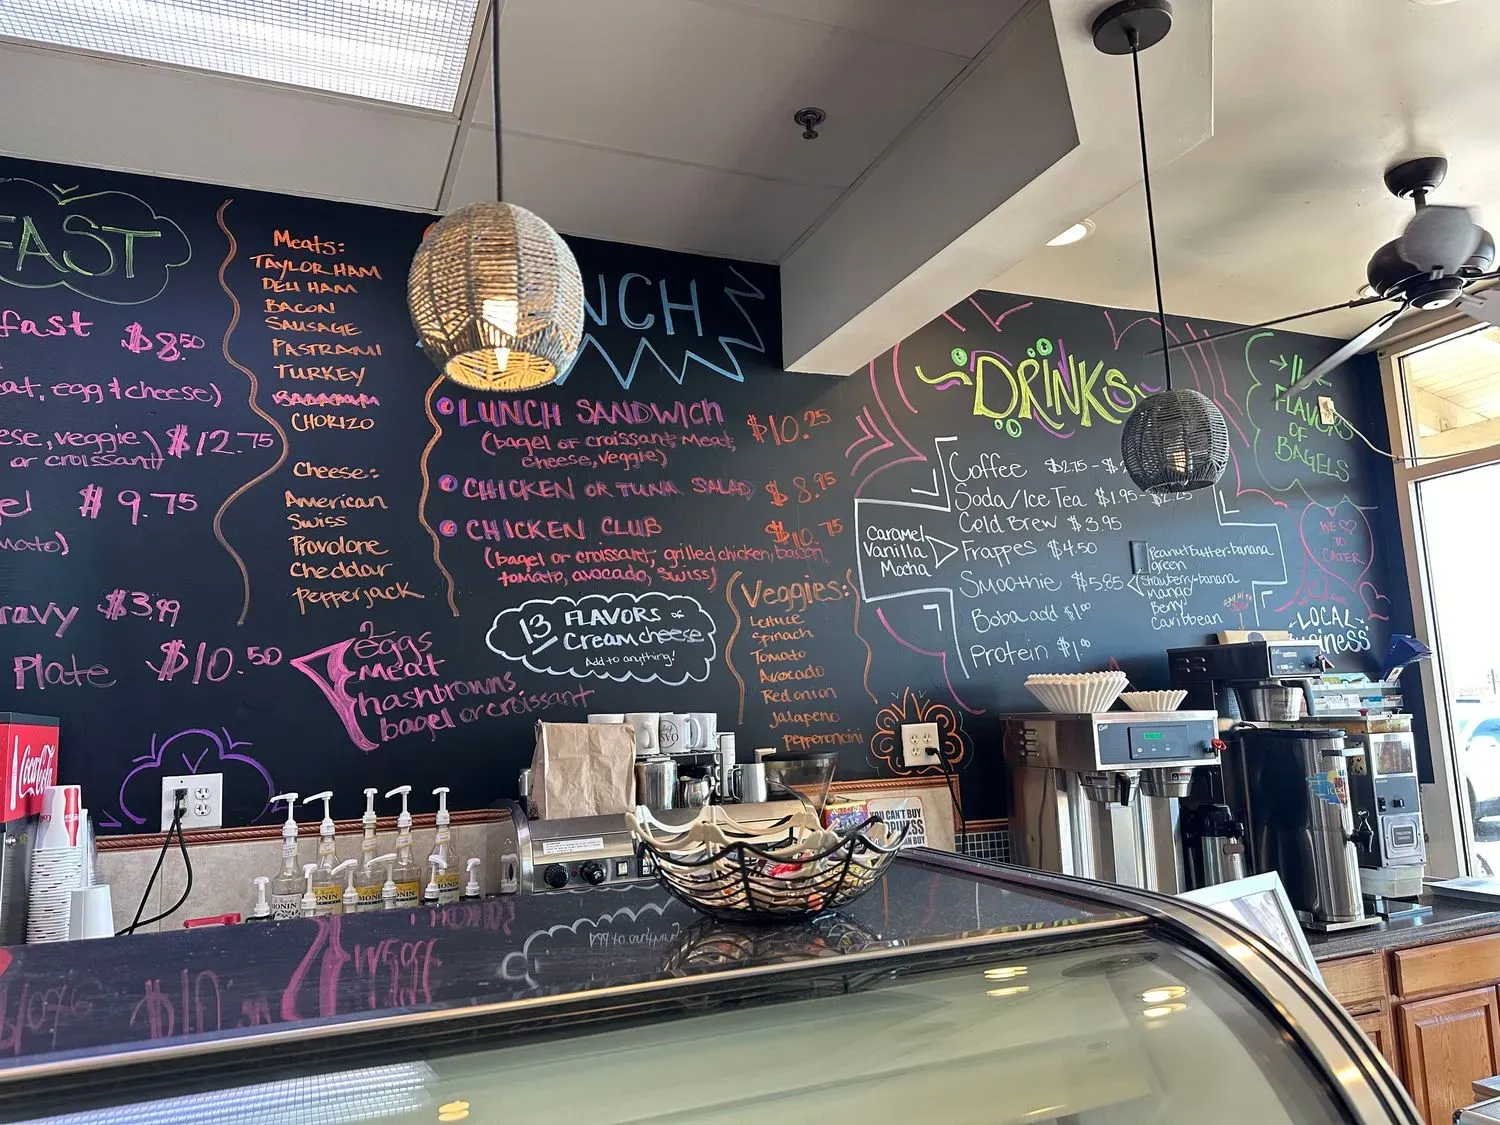 FAST
fast $8.50
eat, egg & cheese)
ese, veggie) $12.75
or croissant)
el $9.75
mato)
ravy $3.99
Plate $10.50
2 eggs
meat
hashbrowns
bagel or croissant
Meats:
TAYLOR HAM
DELI HAM
BACON
SAUSAGE
PASTRAMI
TURKEY
CHORIZO
Cheese:
American
Swiss
Provolone
Cheddar
Pepperjack
NCH
LUNCH SANDWICH $10.25
(bagel or croissant, meat,
cheese, veggie)
CHICKEN OR TUNA SALAD $8.95
CHICKEN CLUB $10.75
(bagel or croissant, grilled chicken, bacon,
tomato, avocado, swiss)
13 FLAVORS of
Cream cheese
Add to anything!
Veggies:
Lettuce
Spinach
Tomato
Avocado
Red onion
Jalapeno
Pepperoncini
DRINKS
Coffee $2.75 - $2
Soda/Ice Tea $1.95 - $2.25
Cold Brew $3.95
Frappes $4.50
Smoothie $5.85
Boba add $1.00
Protein $1.00
Caramel
Vanilla
Mocha
Peanut butter-banana
green
Strawberry-banana
mango
Berry
Caribbean
FLAVORS
OF
BAGELS
WE
TO
CATER
LOCAL
Coca-Cola
MONIN
MONIN
MONIN
YOU CAN'T BUY
iced